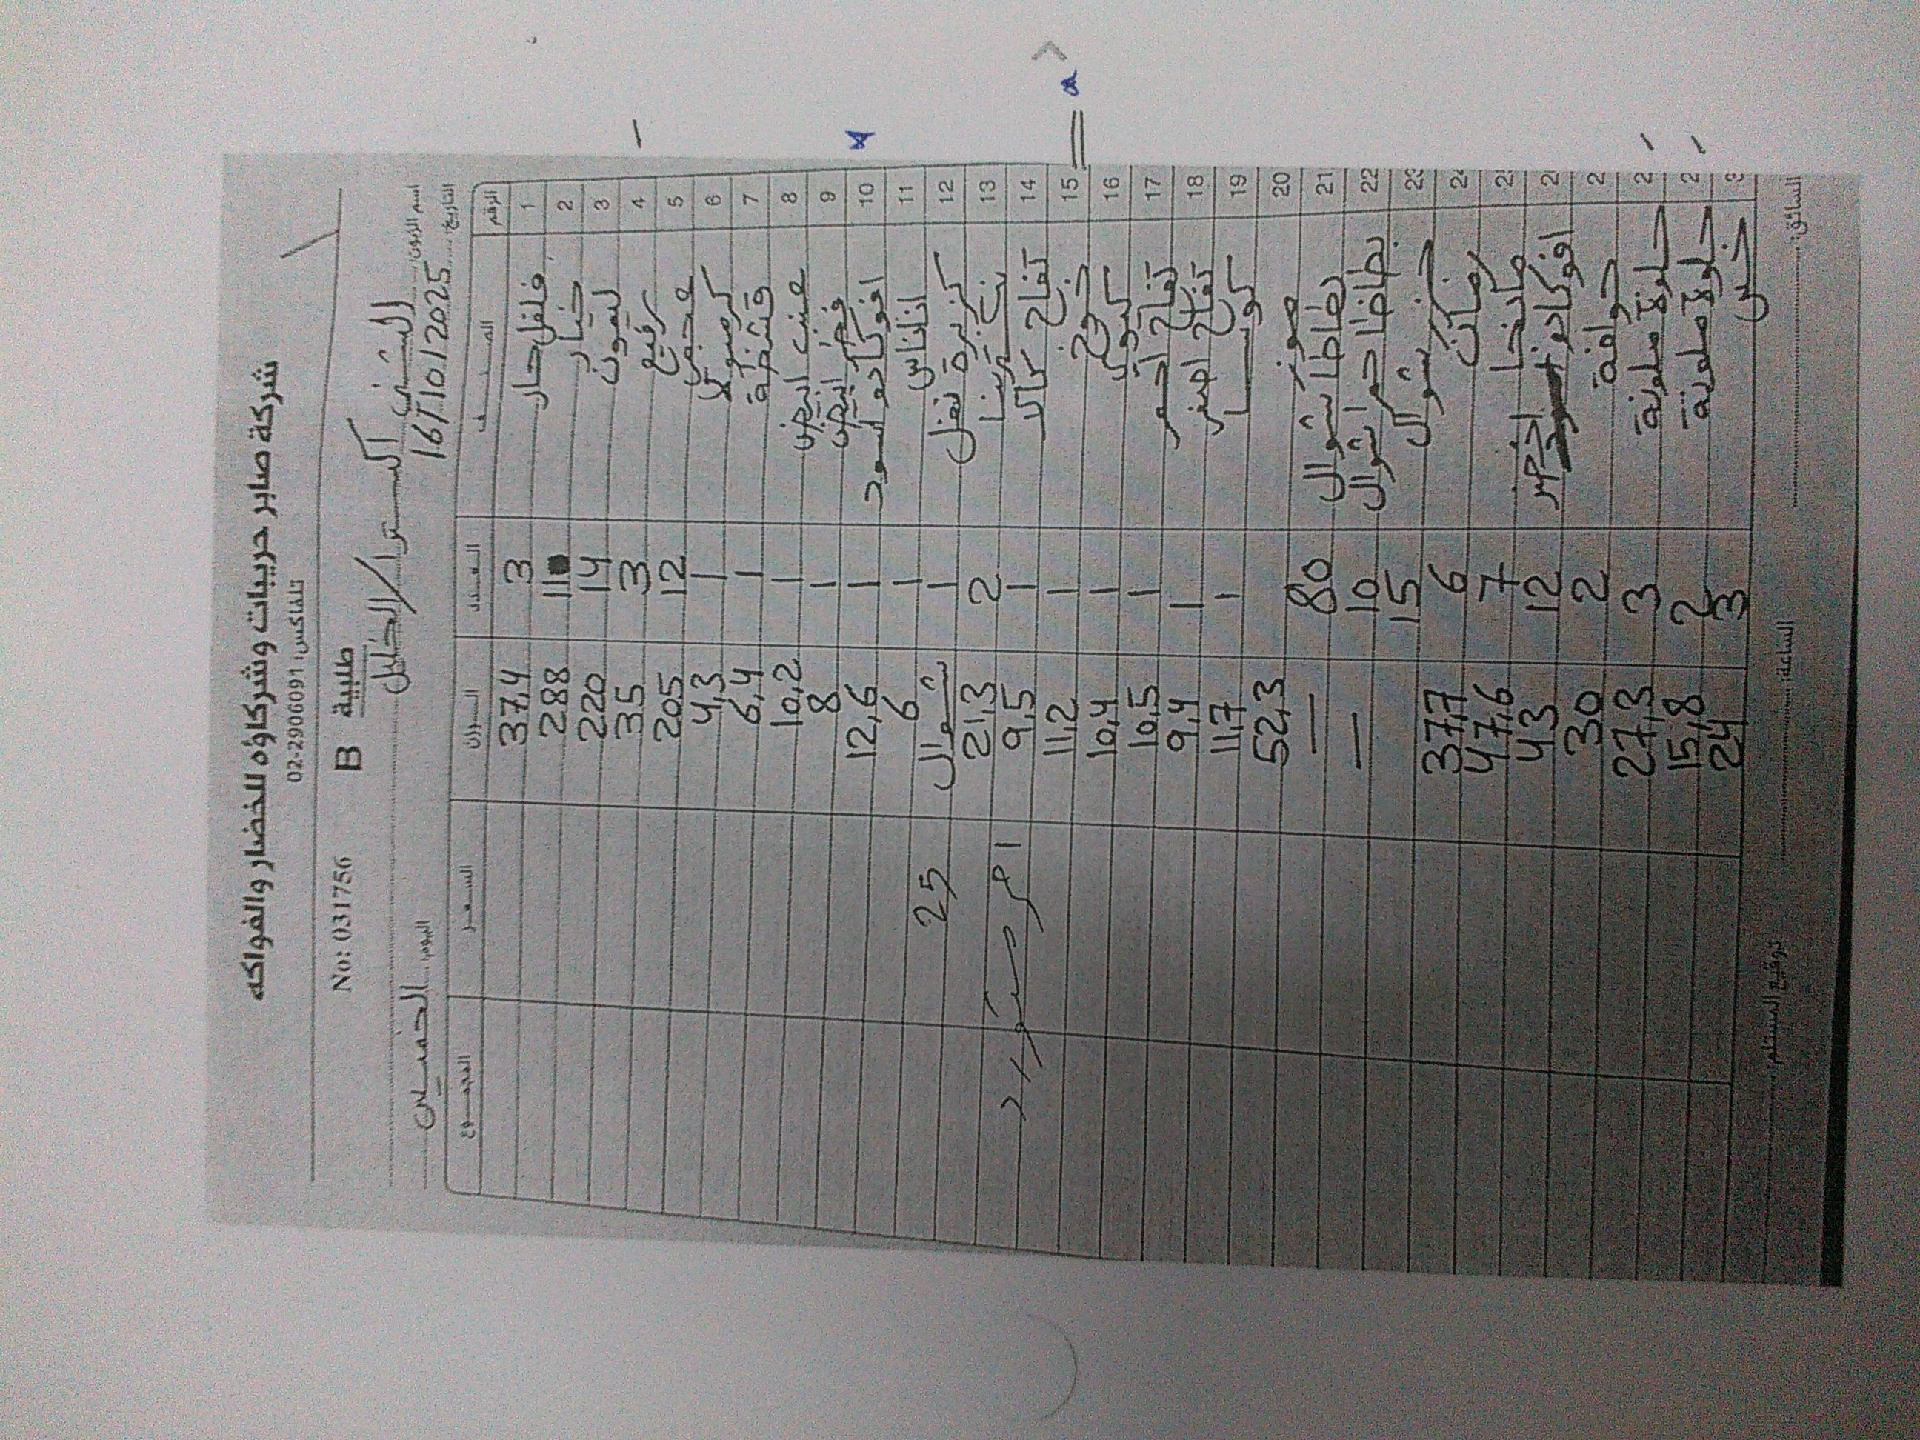 شركة صابر حريبات وشركاؤه للخضار والفواكه
تلفاكس: 02-2906091
No: 031756 B طلبية
اسم الزبون: الشني اكسترا / الخليل
التاريخ: 16/10/2025 اليوم: الخميس
الرقم الصنف العدد الوزن السعر المجموع
1 فلفل حار 3 37,4
2 خيار 11 288
3 ليمون 14 220
4 رفيع 3 35
5 عجمي 12 205
6 1 4,3
7 1 6,4
8 عنب 1 10,2
9 1 8
10 افوكادو اسود 1 12,6
11 اناناس 1 6
12 كزبرة نعل 1 شوال 25
13 2 21,3
14 تفاح كالا 1 9,5
15 خوخ 1 11,2
16 1 10,4
17 تفاح احمر 1 10,5
18 تفاح اصفر 1 9,4
19 كوسا 1 11,7
20 موز 52,3
21 بطاطا شوال 80 —
22 بطاطا حمرا شوال 10 —
23 جزر شوال 15
2 رمان 6 37,7
2 مانجا 7 47,6
2 افوكادو اخضر 12 43
2 جوافة 2 30
2 حلوة ملونة 3 27,3
2 حلوة ملونة 2 15,8
3 خس 3 24
السائق: الساعة: توقيع المستلم